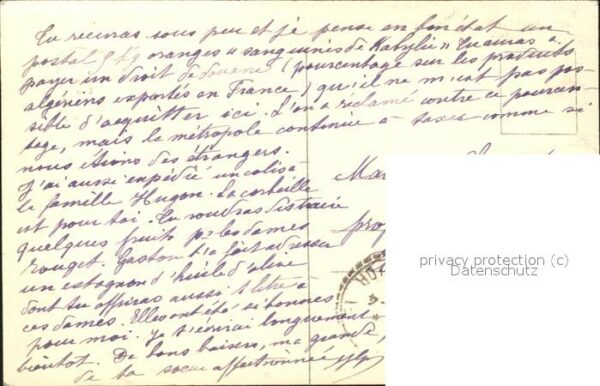 Tu recevras sous peu et je pense en bon état un
postal 5 kg oranges "sanguines de Kabylie" Tu auras à
payer un droit de douane (pourcentage sur les produits
algériens exportés en France) qu'il ne m'est pas pos
sible d'acquitter ici. L'on a réclamé contre ce pourcen
tage, mais la métropole continue à taxer comme si
nous étions des étrangers.
J'ai aussi expédié un colis à
la famille Hugon. La corbeille
est pour toi. Tu voudras distraire
quelques fruits pr les dames
Rouget. Gaston t'a fait adresser
un estagnon d'huile d'olive
dont tu offriras aussi 1 litre à
ces dames. Elles ont été si bonnes
pour moi. Je t'écrirai longuement
bientôt. De bons baisers, ma grande,
de ta soeur affectionnée
privacy protection (c)
Datenschutz